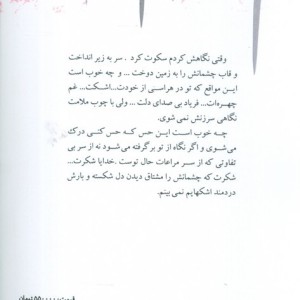 وقتی نگاهش کردم سکوت کرد . سر به زیر انداخت
و قاب چشمانش را به زمین دوخت ... و چه خوب است
این مواقع که تو در هراسی از خودت...اشکت... غم
چهره‌ات... فریاد بی صدای دلت ... ولی با چوب ملامت
نگاهی سرزنش نمی شوی.
چه خوب است این حس که حس کنی درک
می‌شوی و اگر نگاه از تو برگرفته می‌شود نه از سر بی
تفاوتی که از سر مراعات حال توست .خدایا شکرت...
شکرت که چشمانش را مشتاق دیدن دل شکسته و بارش
دردمند اشکهایم نمی بینم.
تومان